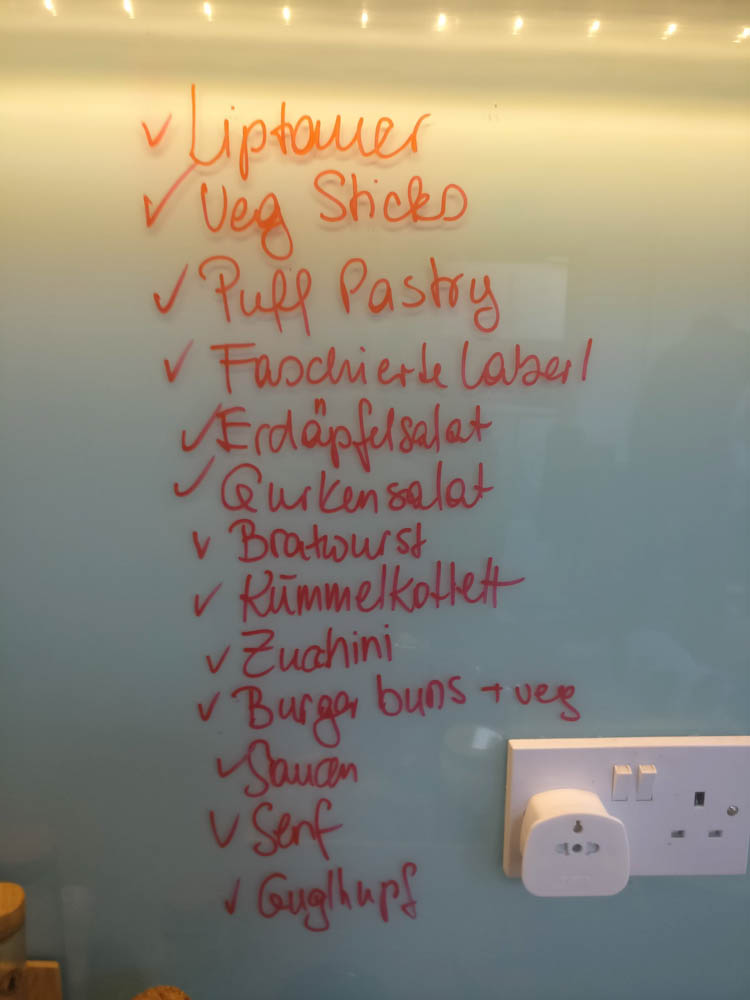 ✓ Liptauer
✓ Veg Sticks
✓ Puff Pastry
✓ Faschierte Laberl
✓ Erdäpfelsalat
✓ Gurkensalat
✓ Bratwurst
✓ Kümmelkottlett
✓ Zucchini
✓ Burger buns + veg
✓ Saucen
✓ Senf
✓ Guglhupf